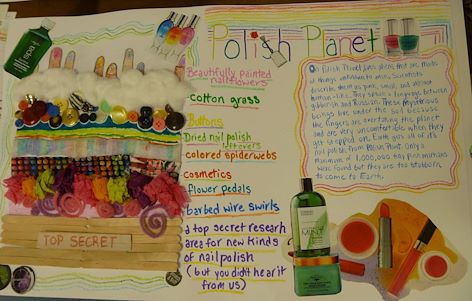 Polish Planet
Beautifully painted
nailflowers
cotton grass
Buttons
Dried nail polish
leftovers
colored spiderwebs
cosmetics
flower pedals
barbed wire swirls
a top secret research
area for new kinds
of nail polish
(but you didn't hear it
from us)
On Polish Planet lives aliens that are made
of things unknown to man. Scientists
describe them as pink, small, and almost
human-like. They speak a language between
gibberish and Russian. These mysterious
beings live under the soil because
the fingers are overtaking the planet
and are very uncomfortable when they
get stepped on. Earth gets all of its
nail polish from Polish Planet. Only a
minimum of 1,000,000 tiny pink
were found but they are too stubborn
to come to Earth.
TOP SECRET